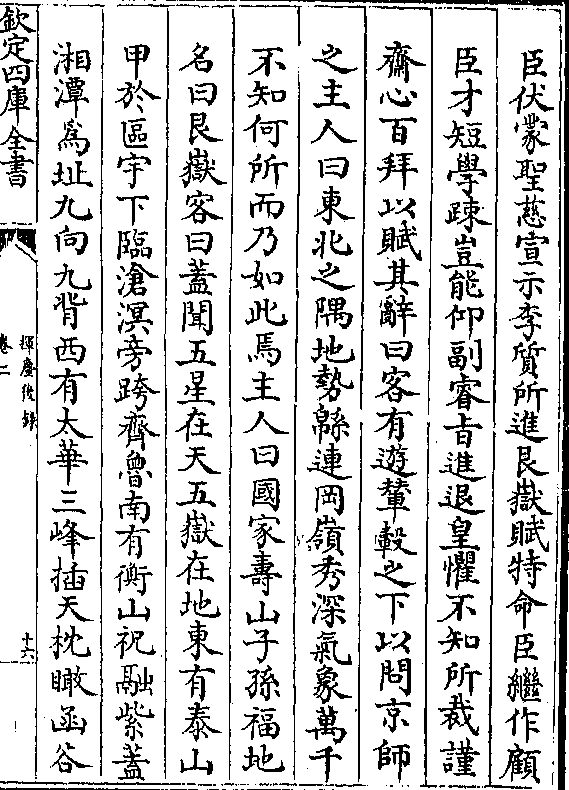 臣伏蒙聖慈宣示李質所進艮嶽賦特命臣繼作顧
臣才短學踈豈能仰副睿旨進退皇懼不知所裁謹
齋心百拜以賦其辭曰客有遊輦轂之下以問京師
之主人曰東北之隅地勢緜連岡嶺秀深氣象萬千
不知何所而乃如此焉主人曰國家壽山子孫福地
名曰艮嶽客曰蓋聞五星在天五嶽在地東有泰山
甲於區宇下臨滄溟旁跨齊魯南有衡山祝融紫蓋
湘潭爲址九向九背西有太華三峰插天枕瞰函谷
欽定四庫全書
揮麈後錄
卷二
十六